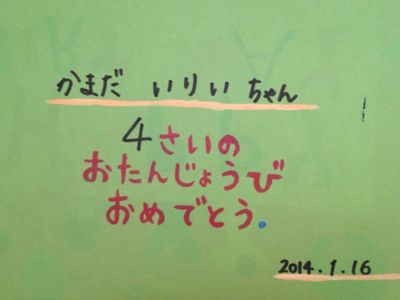 かまだ いりい ちゃん
4さいの
おたんじょうび
おめでとう.
2014.1.16